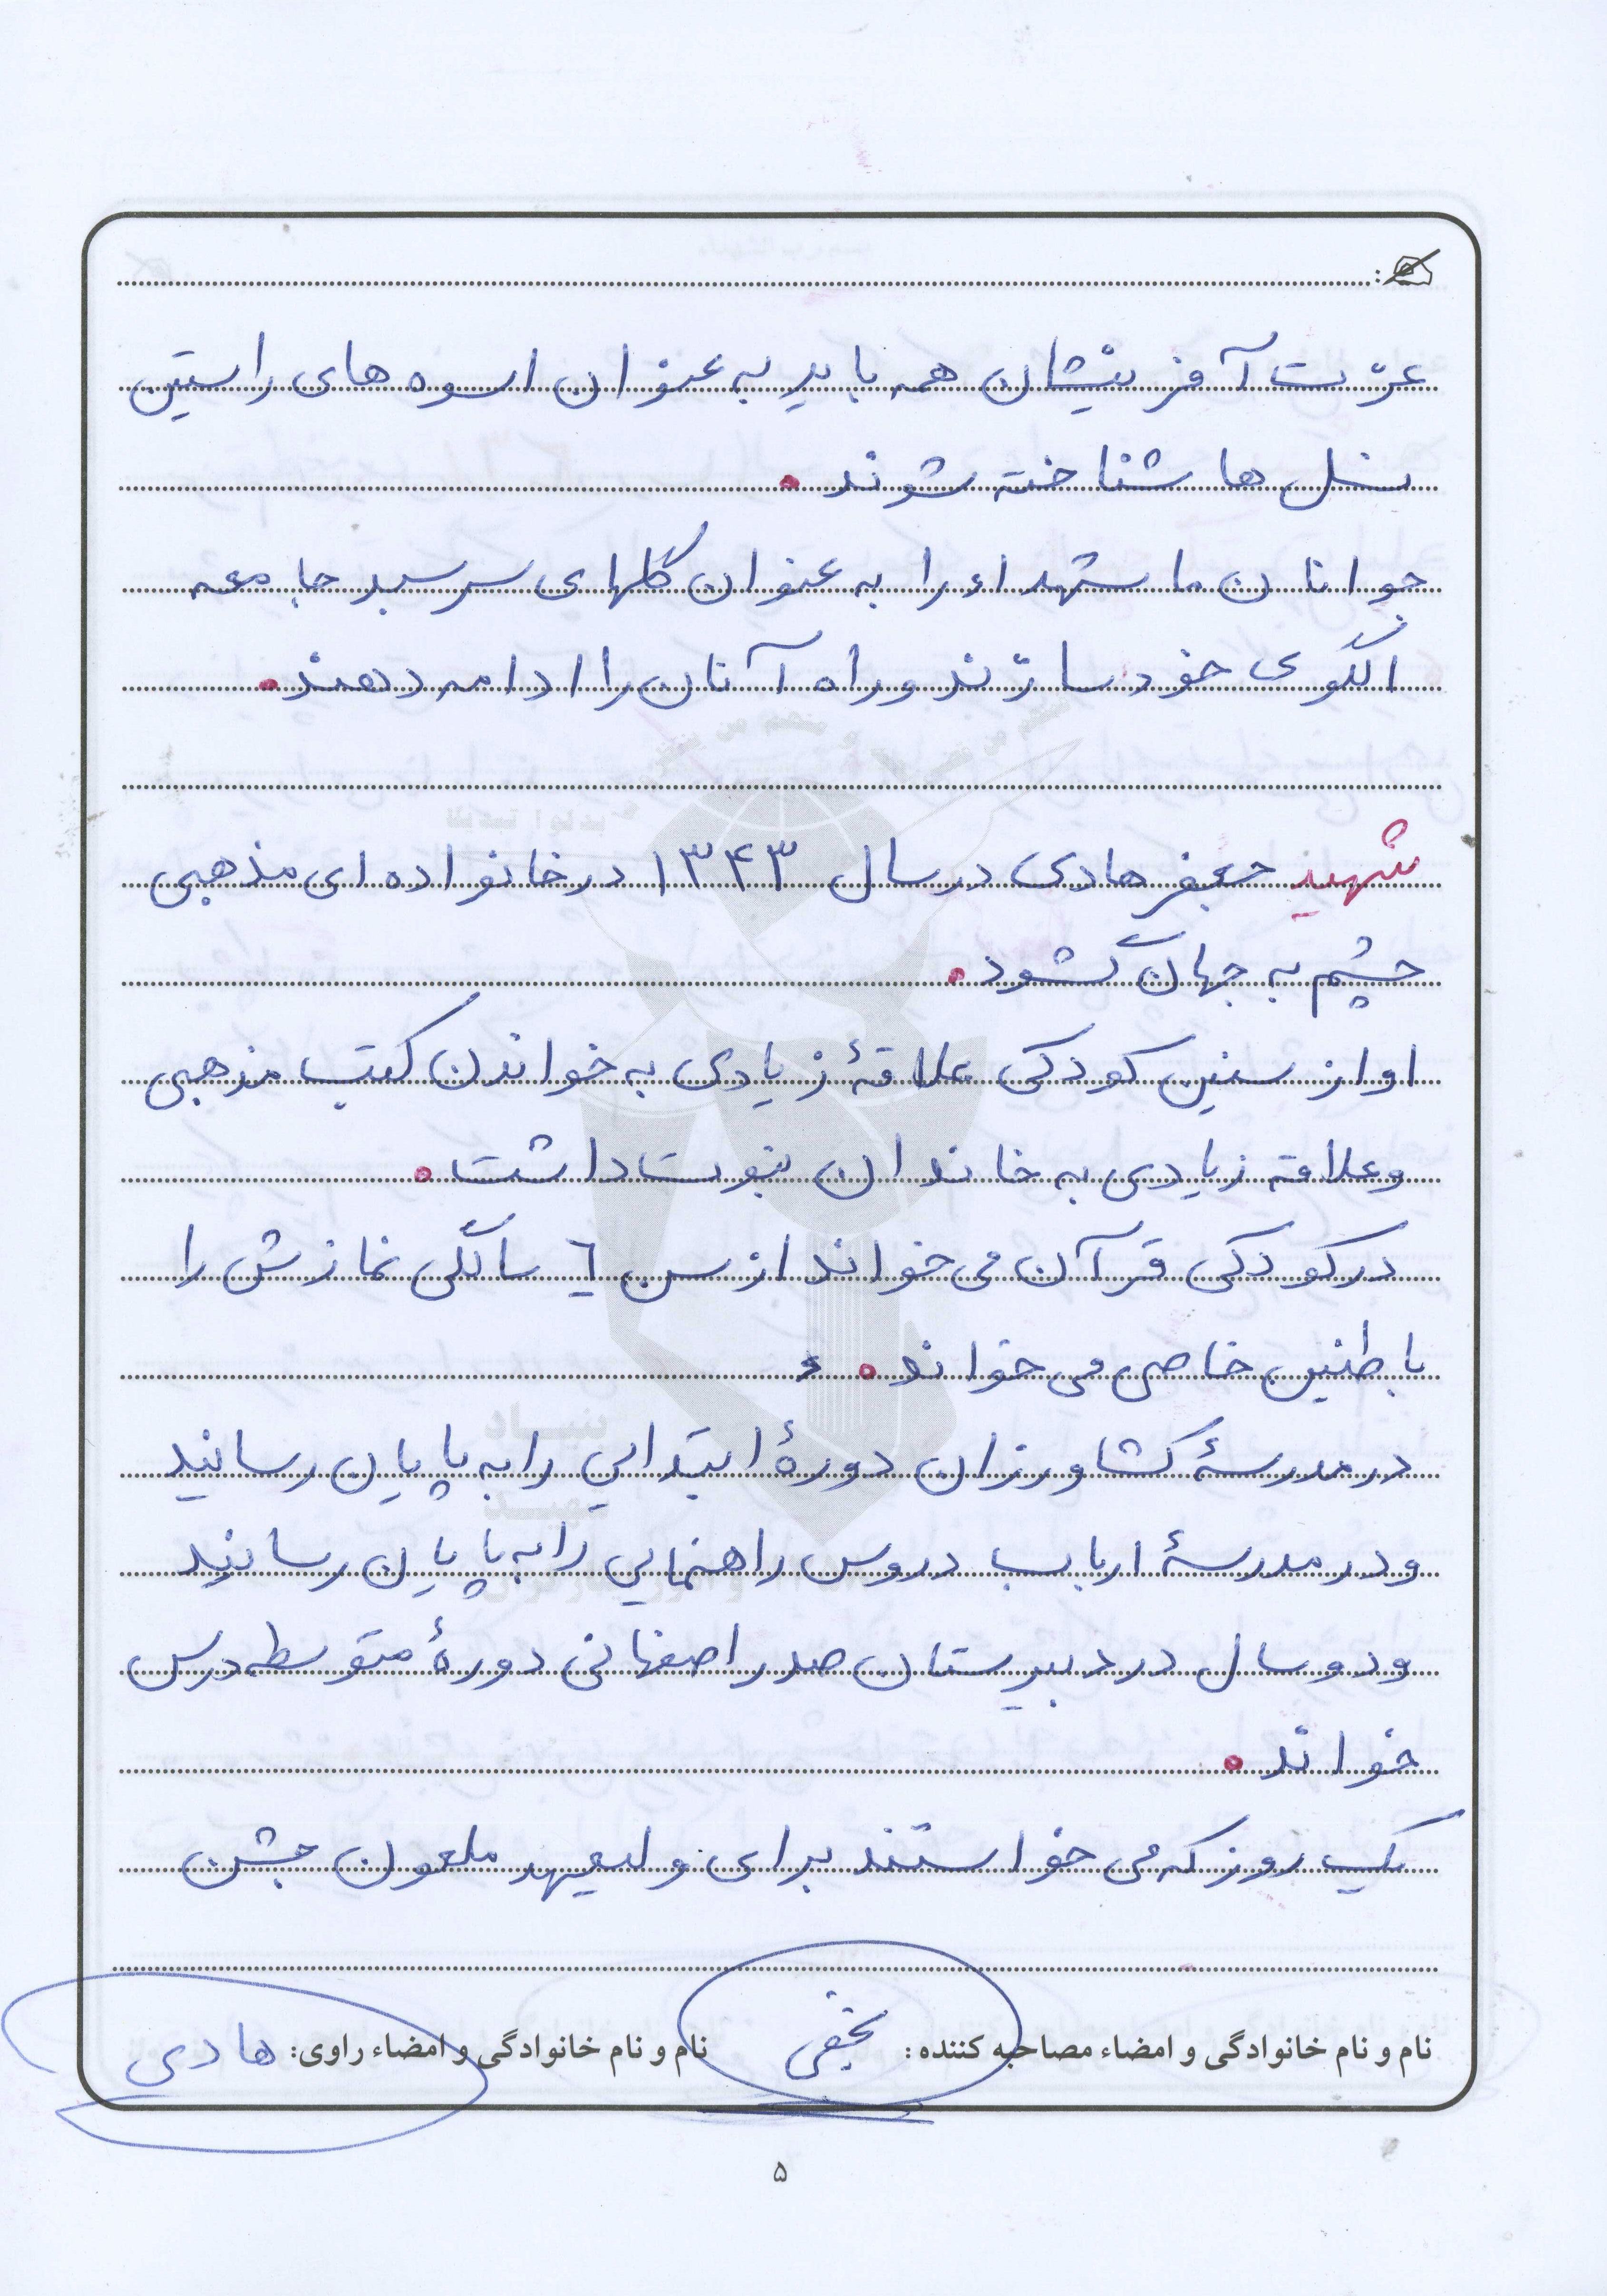 عزّت آفرینیشان همه باید به عنوان اسوه های راستین
نسل ها شناخته شوند.
جوانان ما شهداء را به عنوان گلهای سرسبد جامعه
الگوی خود سازند و راه آنان را ادامه دهند.
شهید جعفر هادی در سال ۱۳۴۳ در خانواده ای مذهبی
چشم به جهان گشود.
او از سنین کودکی علاقهٔ زیادی به خواندن کتب مذهبی
و علاقه زیادی به خاندان نبوت داشت.
در کودکی قرآن می خواند از سن ٦ سالگی نمازش را
با طنین خاصی می خواند.
در مدرسهٔ کشاورزان دورهٔ ابتدایی را به پایان رسانید
و در مدرسهٔ ارباب دروس راهنمایی را به پایان رسانید
و دو سال در دبیرستان صدر اصفهانی دورهٔ متوسطه درس
خواند.
یک روز که می خواستند برای ولیعهد ملعون جشن
نام و نام خانوادگی و امضاء مصاحبه کننده: نجفی نام و نام خانوادگی و امضاء راوی: هادی
۵